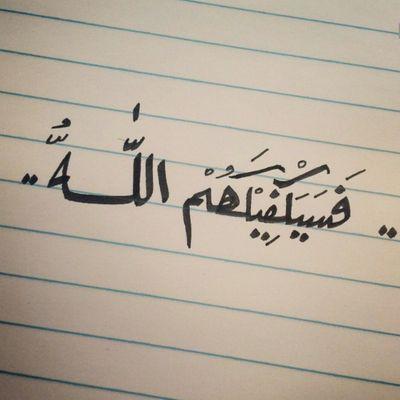 .. فَسَيَكْفِيْكَهُمْ اللّٰهُ ..